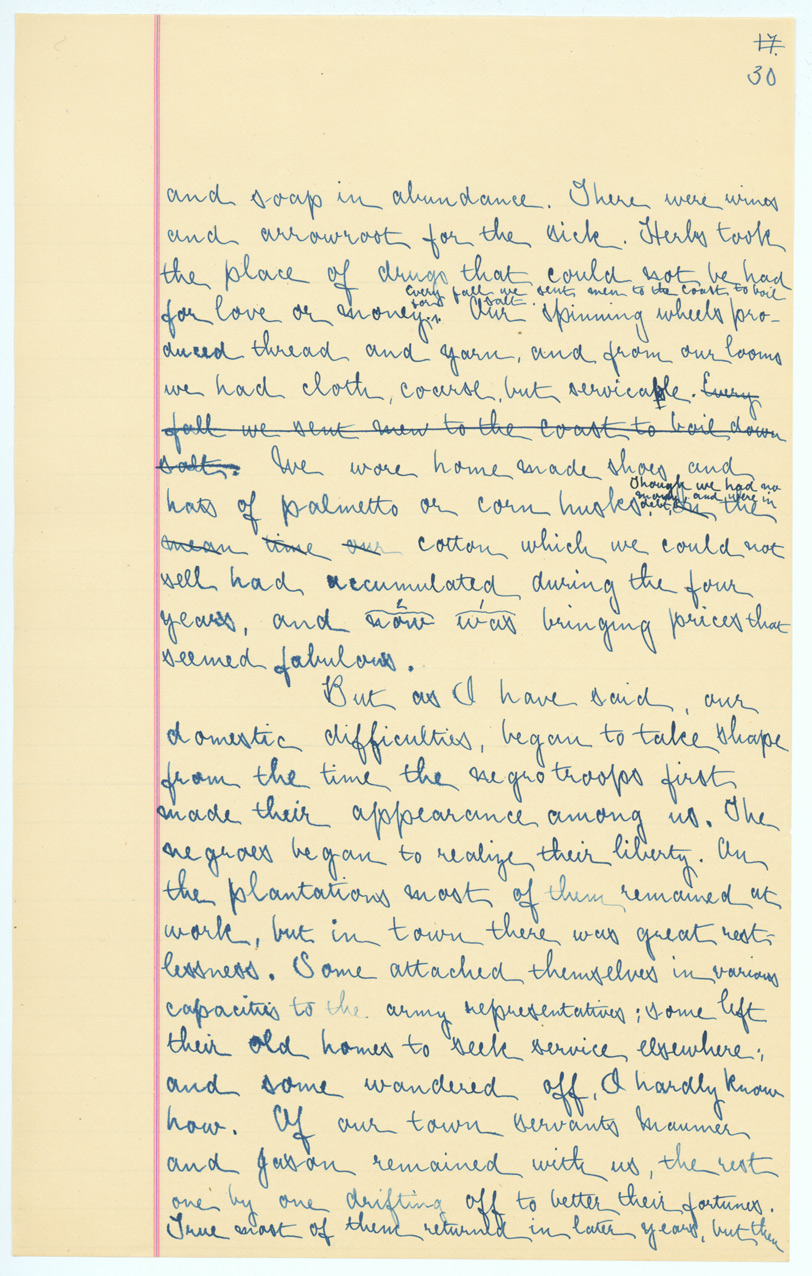 17.
30
and soap in abundance. There were wines
and arrowroot for the sick. Herbs took
the place of drugs that could not be had
Every fall we sent men to the coast to boil
down salt.
for love or money. Our spinning wheels pro-
duced thread and yarn, and from our looms
we had cloth, coarse, but servicable. Every
fall we sent men to the coast to boil down
salt. We wore home made shoes and
Though we had no
money, and were in
debt,
hats of palmetto or corn husks. In the
mean time our cotton which we could not
sell had accumulated during the four
years, and now was bringing prices that
seemed fabulous.
But as I have said, our
domestic difficulties, began to take shape
from the time the negro troops first
made their appearance among us. The
negroes began to realize their liberty. On
the plantations most of them remained at
work, but in town there was great rest-
lessness. Some attached themselves in various
capacities to the army representatives; some left
their old homes to seek service elsewhere;
and some wandered off, I hardly know
how. Of our town servants Maumer
and Jason remained with us, the rest
one by one drifting off to better their fortunes.
True most of them returned in later years, but then